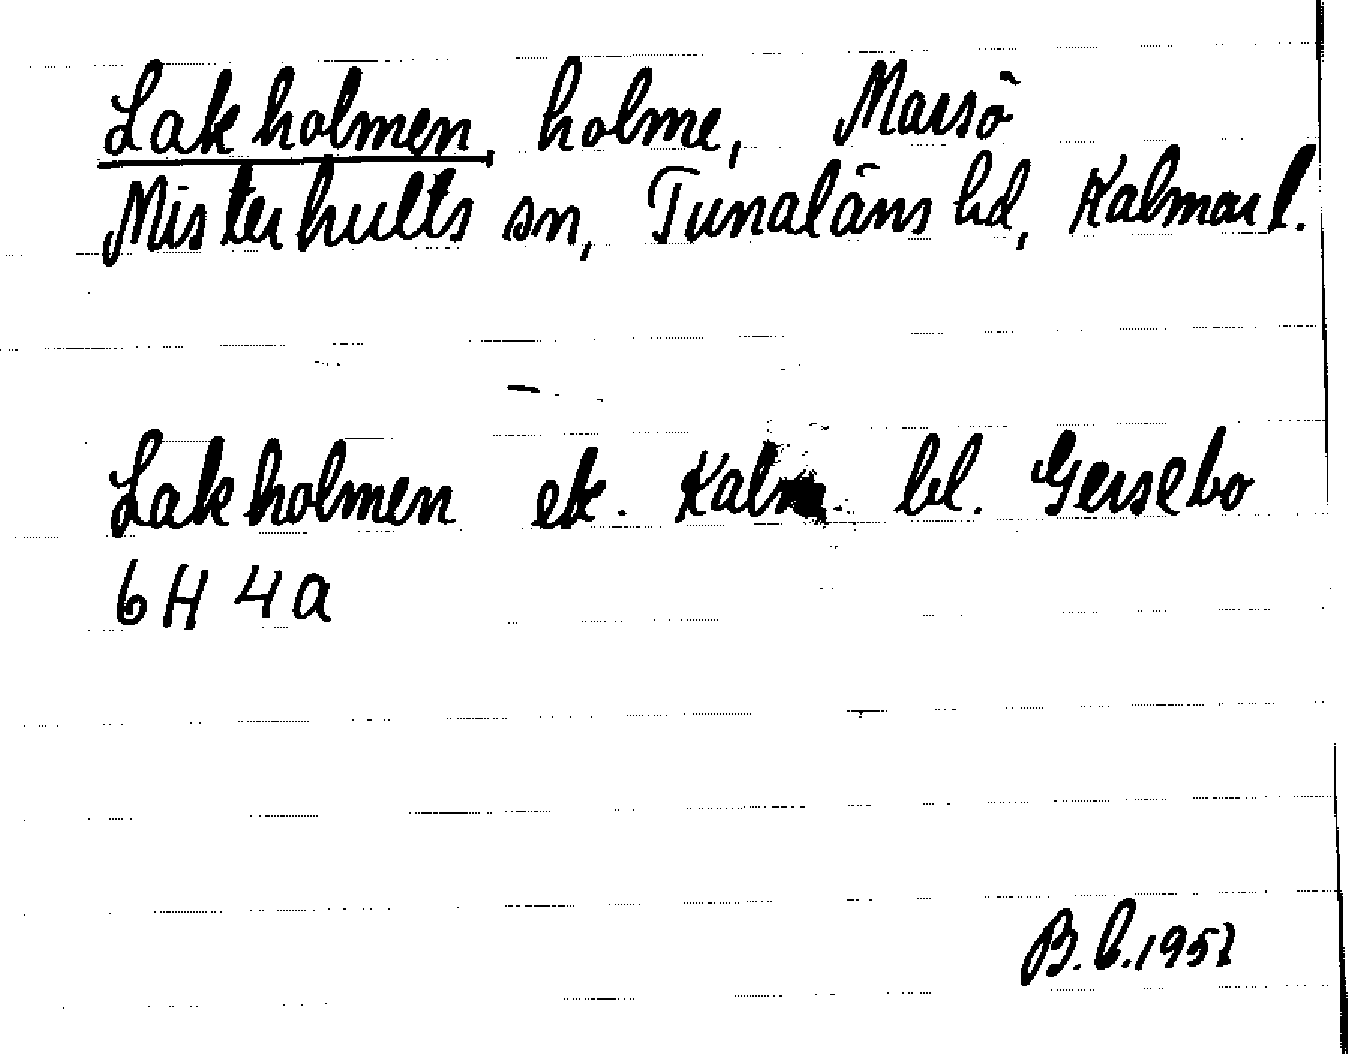 Lakholmen, holme, Marsö
Misterhults sn, Tunaläns hd, Kalmar l.
Lakholmen ek. Kalm. bl. Gersebo
6H 4a
B.C. 1952